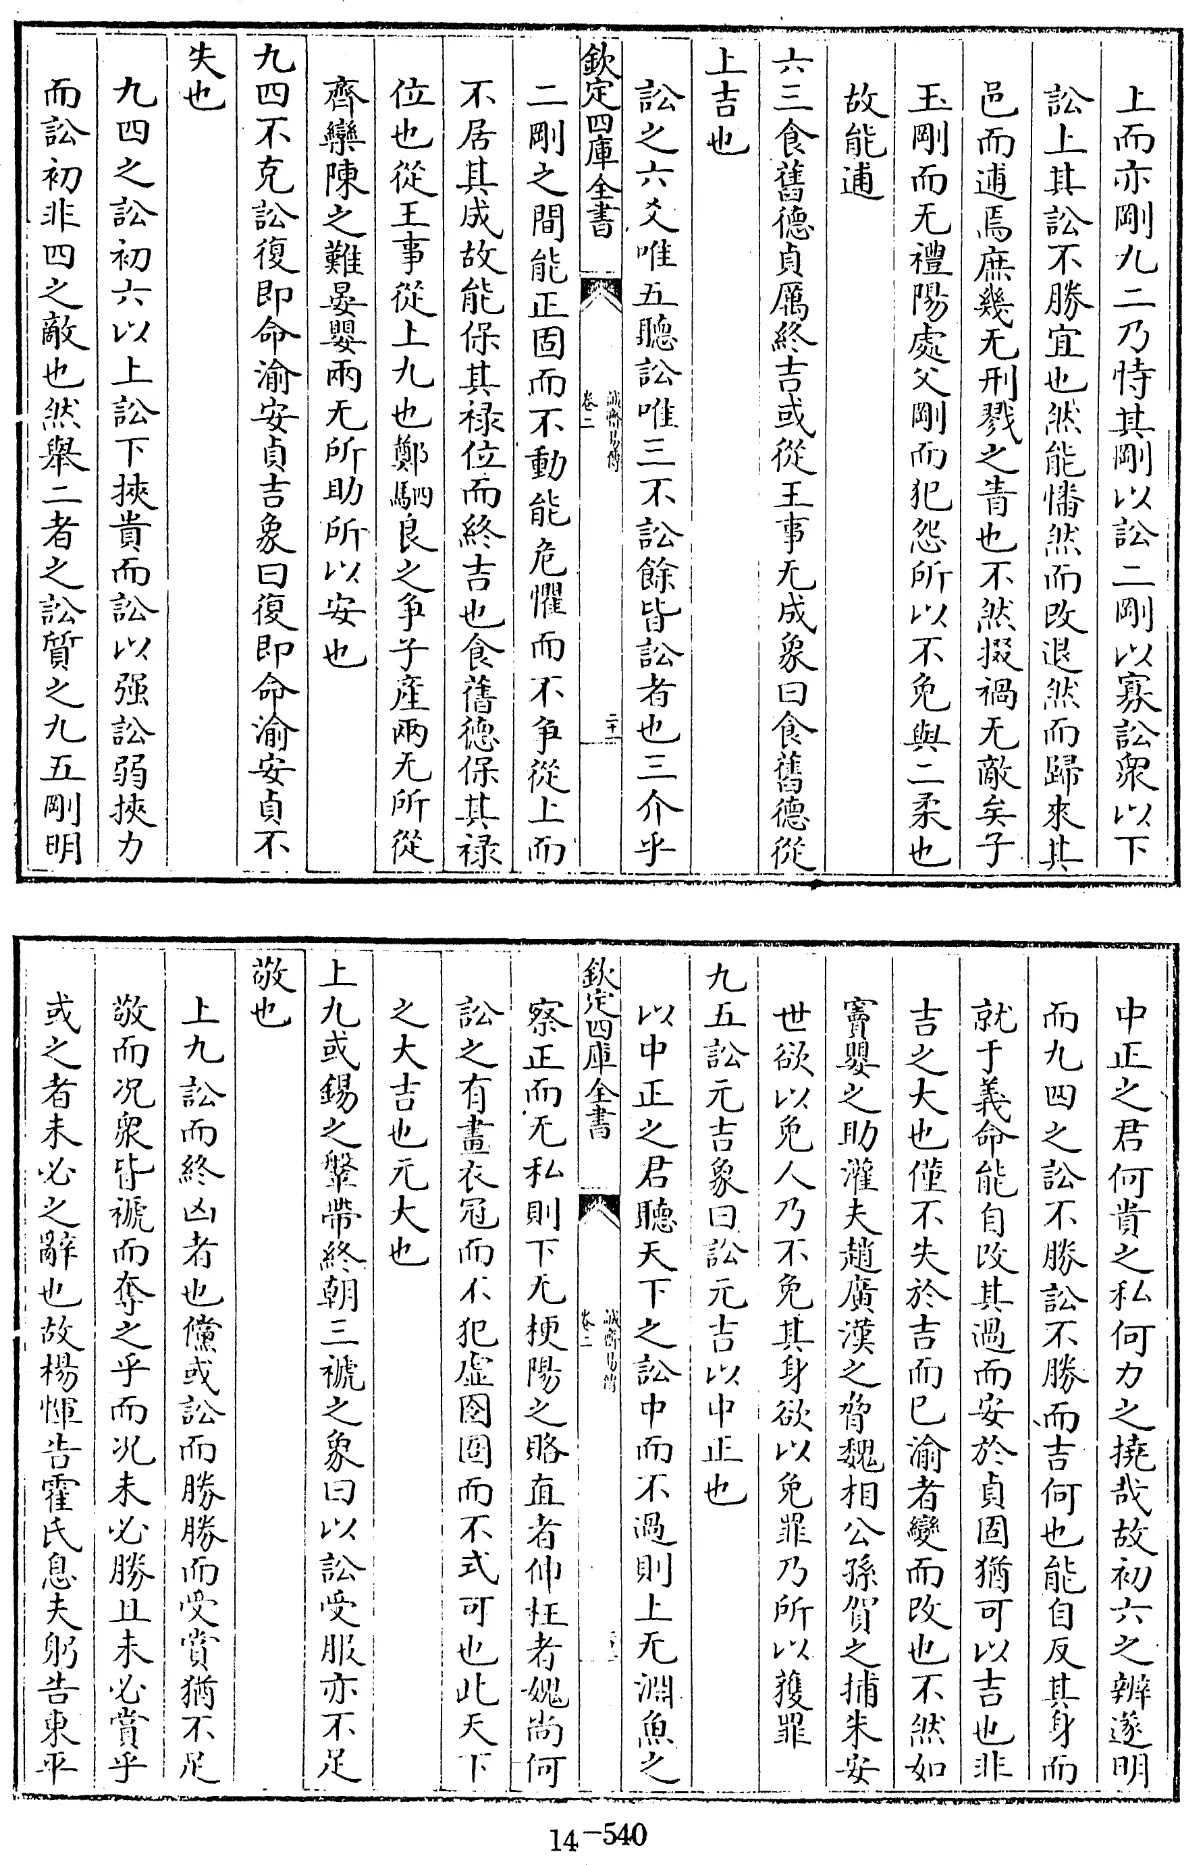 上而亦剛九二乃恃其剛以訟二剛以寡訟衆以下
訟上其訟不勝宜也然能憣然而改退然而歸來其
邑而逋焉庶幾无刑戮之眚也不然掇禍无敵矣子
玉剛而无禮陽處父剛而犯怨所以不免與二柔也
故能逋
六三食舊德貞厲終吉或從王事无成象曰食舊德從
上吉也
訟之六爻唯五聽訟唯三不訟餘皆訟者也三介乎
欽定四庫全書
誠齋易傳
卷二
二十一
二剛之間能正固而不動能危懼而不爭從上而
不居其成故能保其祿位而終吉也食舊德保其祿
位也從王事從上九也鄭駟良之爭子產兩无所從
齊欒陳之難晏嬰兩无所助所以安也
九四不克訟復即命渝安貞吉象曰復即命渝安貞不
失也
九四之訟初六以上訟下挾貴而訟以强訟弱挾力
而訟初非四之敵也然舉二者之訟質之九五剛明
中正之君何貴之私何力之撓哉故初六之辨遂明
而九四之訟不勝訟不勝而吉何也能自反其身而
就于義命能自改其過而安於貞固猶可以吉也非
吉之大也僅不失於吉而已渝者變而改也不然如
竇嬰之助灌夫趙廣漢之脅魏相公孫賀之捕朱安
世欲以免人乃不免其身欲以免罪乃所以獲罪
九五訟元吉象曰訟元吉以中正也
以中正之君聽天下之訟中而不過則上无淵魚之
欽定四庫全書
誠齋易傳
卷二
察正而无私則下无梗陽之賂直者伸枉者媿尚何
訟之有畫衣冠而不犯虛囹圄而不式可也此天下
之大吉也元大也
上九或錫之鞶帶終朝三褫之象曰以訟受服亦不足
敬也
上九訟而終凶者也儻或訟而勝勝而受賞猶不足
敬而况衆皆褫而奪之乎而况未必勝且未必賞乎
或之者未必之辭也故楊惲告霍氏息夫躬告東平
14-540